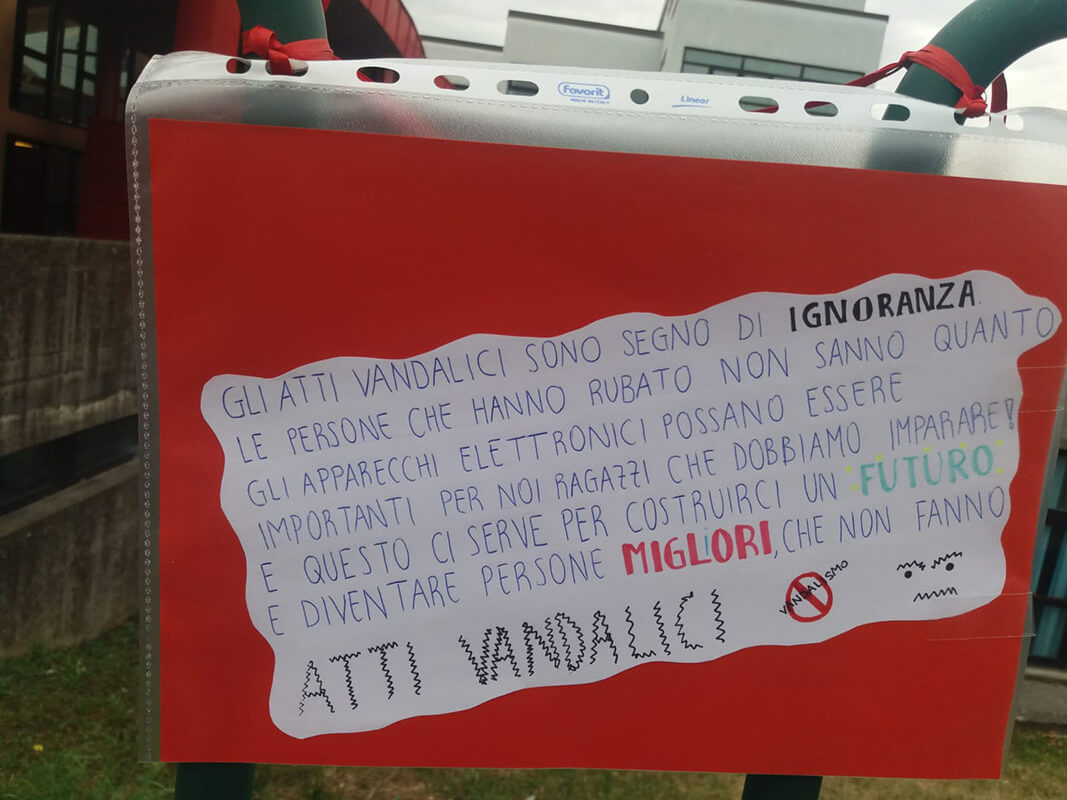 Favorit
MADE IN ITALY
Linear
GLI ATTI VANDALICI SONO SEGNO DI IGNORANZA.
LE PERSONE CHE HANNO RUBATO NON SANNO QUANTO
GLI APPARECCHI ELETTRONICI POSSANO ESSERE
IMPORTANTI PER NOI RAGAZZI CHE DOBBIAMO IMPARARE!
E QUESTO CI SERVE PER COSTRUIRCI UN FUTURO
E DIVENTARE PERSONE MIGLiORI, CHE NON FANNO
ATTI VANDALICI
VANDALISMO